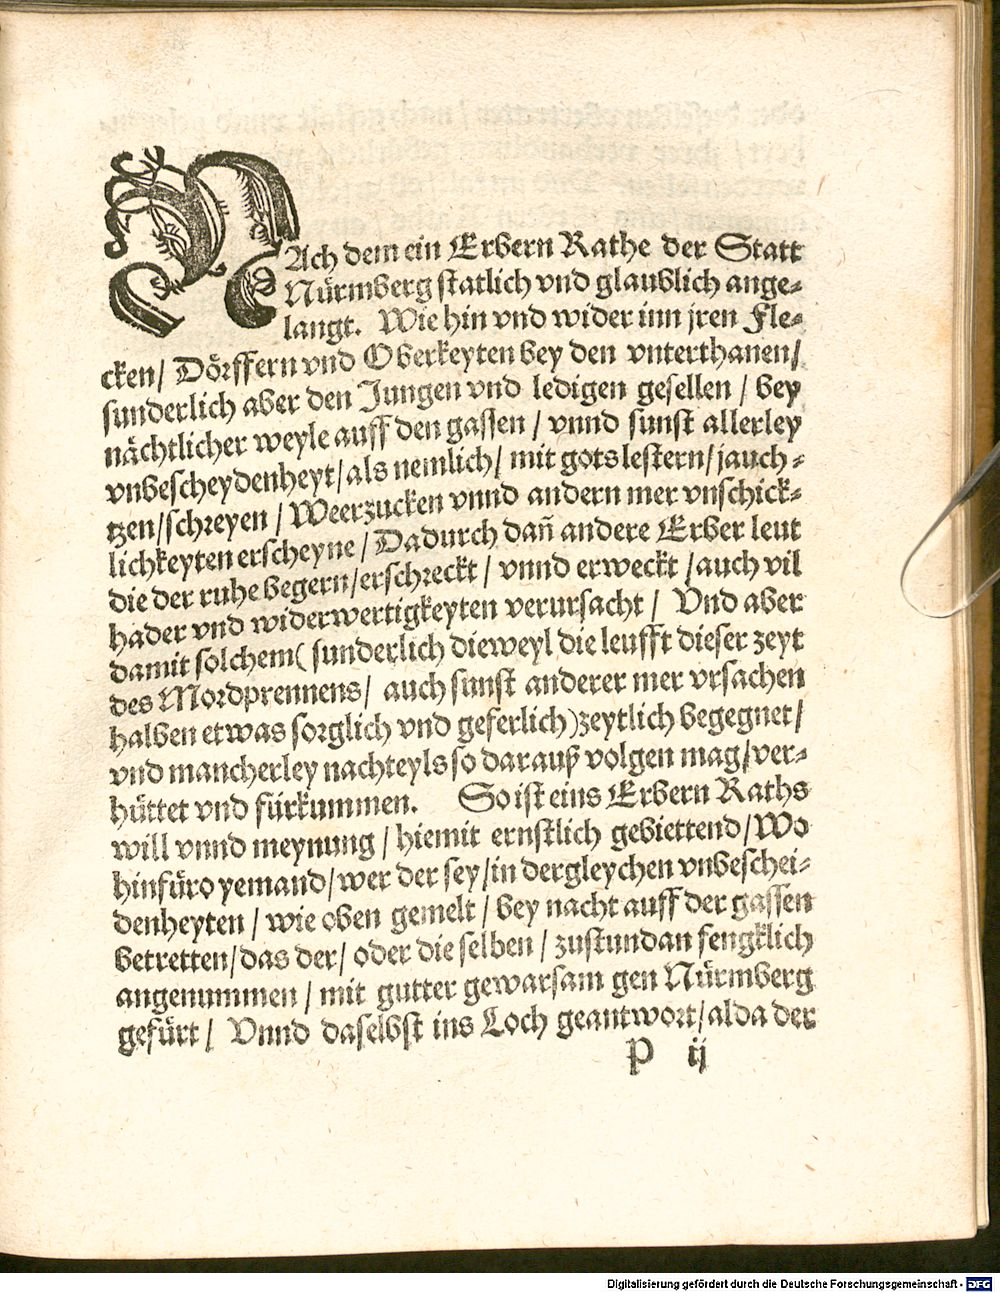 NAch dem ein Erbern Rathe der Statt
Nürmberg statlich vnd glaublich ange-
langt. Wie hin vnd wider inn jren Fle-
cken/ Dörffern vnd Oberkeyten bey den vnterthanen/
sunderlich aber den Jungen vnd ledigen gesellen / bey
nächtlicher weyle auff den gassen / vnnd sunst allerley
vnbescheydenheyt/als nemlich/ mit gotslestern/jauch-
tzen/schreyen / Weerzucken vnnd andern mer vnschick-
lichkeyten erscheyne / Dadurch dañ andere Erber leut
die der ruhe begern/erschreckt / vnnd erweckt /auch vil
hader vnd widerwertigkeyten verursacht / Vnd aber
damit solchem( sunderlich dieweyl die leufft dieser zeyt
des Mordprennens/ auch sunst anderer mer vrsachen
halben etwas sorglich vnd geferlich)zeytlich begegnet/
vnd mancherley nachteyls so darauß volgen mag/ver-
hüttet vnd fürkummen. So ist eins Erbern Raths
will vnnd meynung / hiemit ernstlich gebiettend/Wo
hinfüro yemand/wer der sey/in dergleychen vnbeschei-
denheyten / wie oben gemelt / bey nacht auff der gassen
betretten/das der/ oder die selben / zustundan fengklich
angenummen / mit gutter gewarsam gen Nürmberg
gefürt / Vnnd daselbst ins Loch geantwort/alda der
P ij
Digitalisierung gefördert durch die Deutsche Forschungsgemeinschaft - DFG